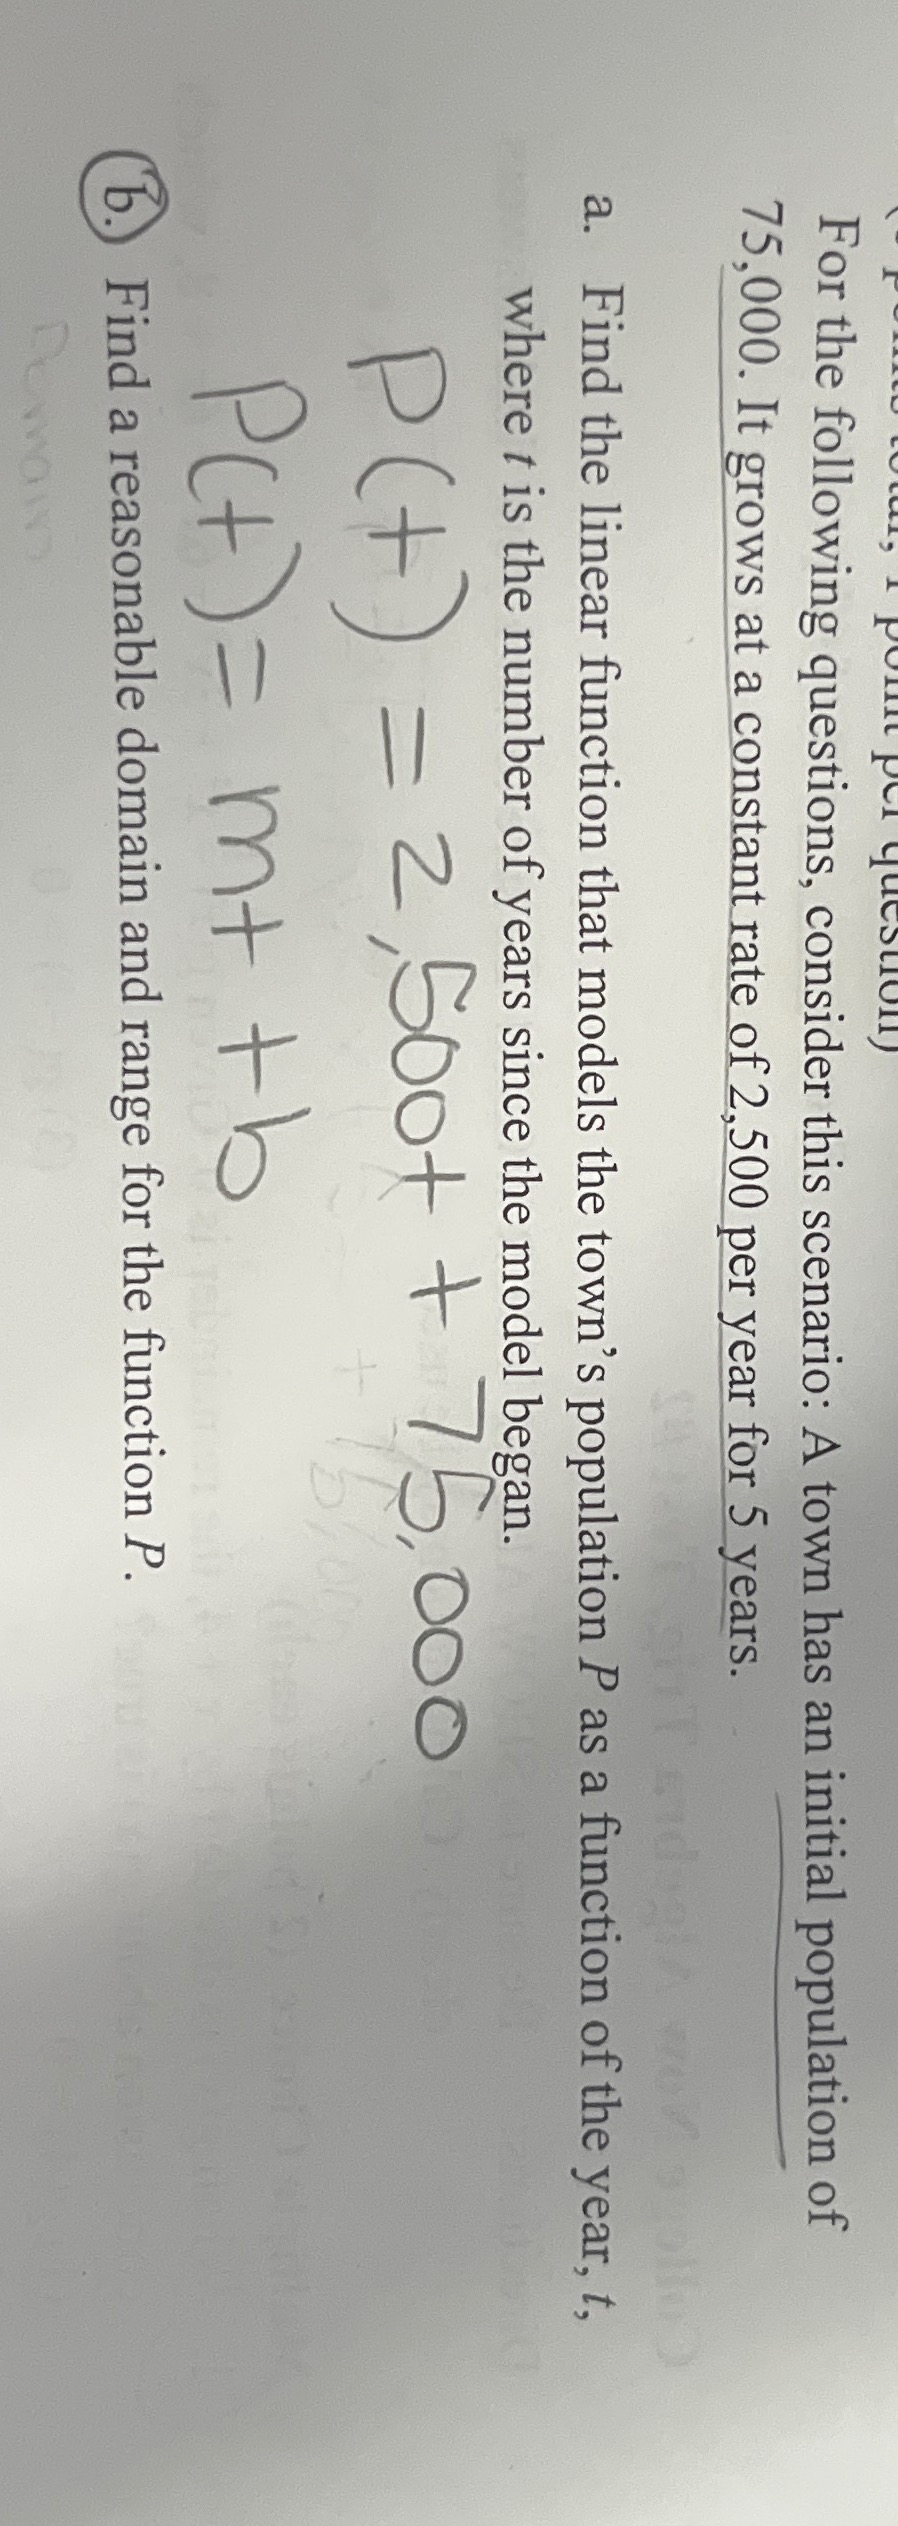 For the following questions, consider this scenario: A town has an initial population of
75,000. It grows at a constant rate of 2,500 per year for 5 years.
a. Find the linear function that models the town's population P as a function of the year, t,
where t is the number of years since the model began.
P(t) = 2,500t + 75,000
P(t) = mt + b
b. Find a reasonable domain and range for the function P.
Domain